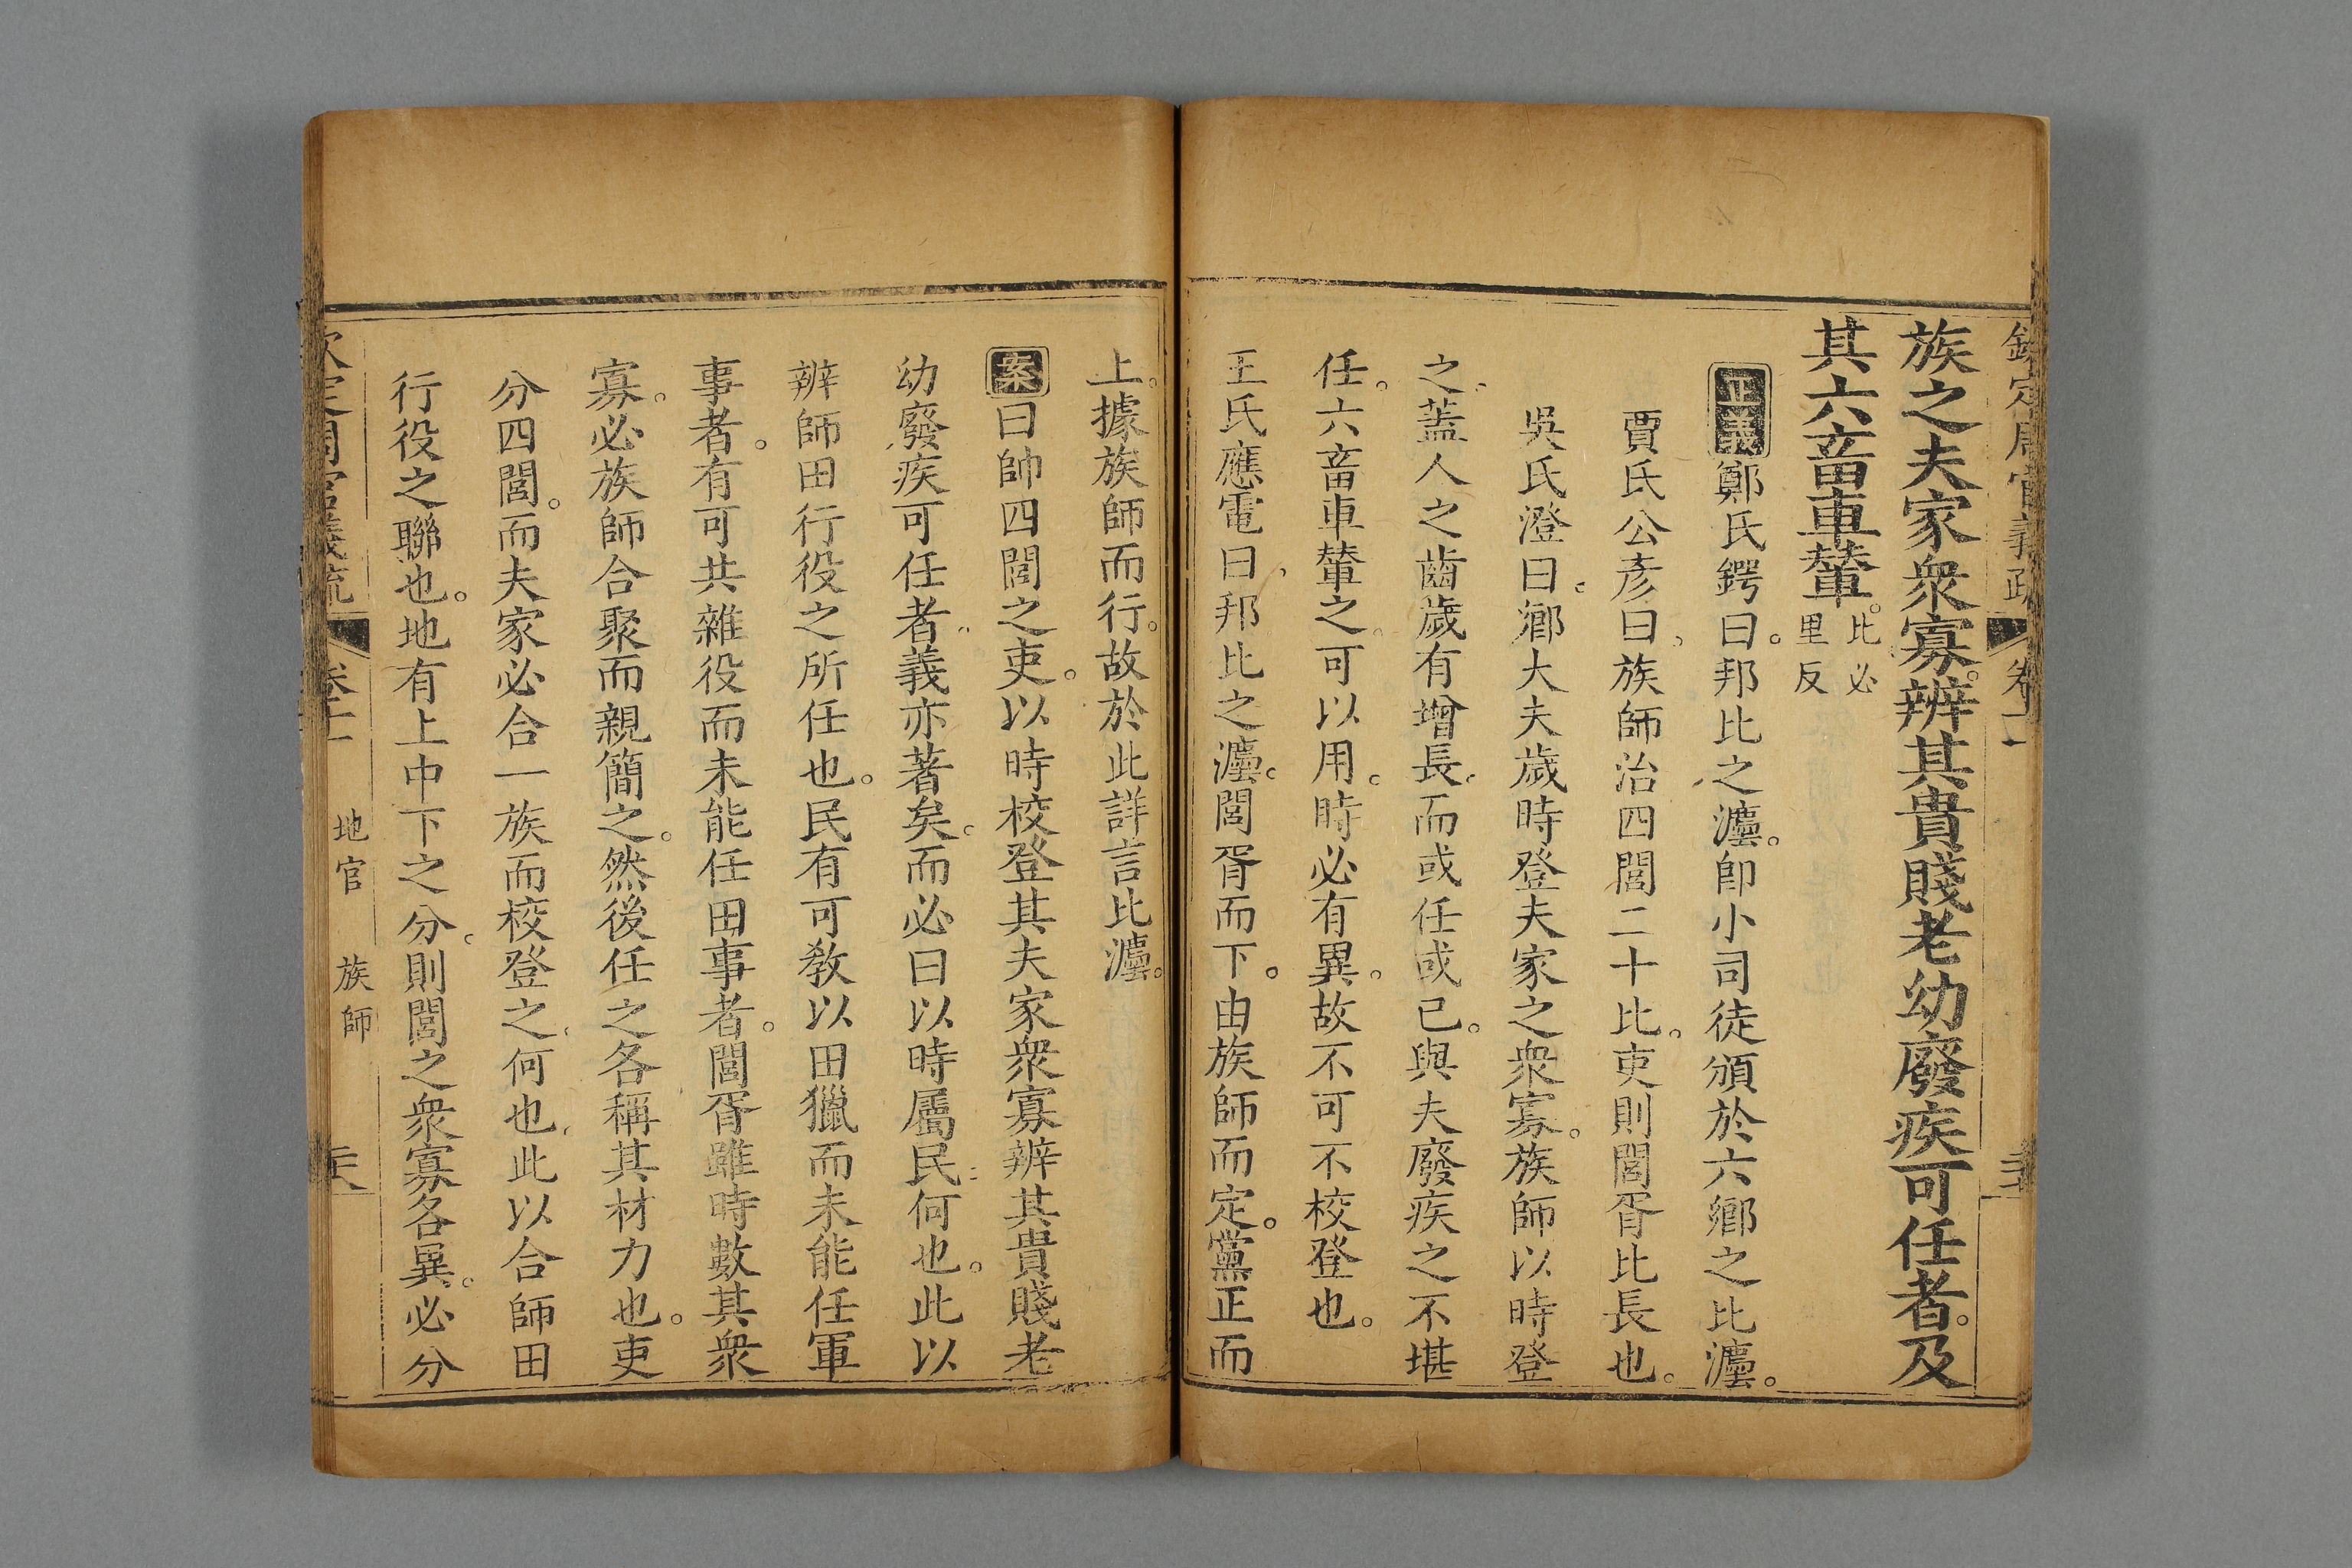 欽定周官義疏 卷十一
族之夫家衆寡。辨其貴賤老幼廢疾可任者。及
其六畜車輦。比必里反
正義鄭氏鍔曰。邦比之灋。卽小司徒頒於六鄉之比灋。
賈氏公彥曰。族師治四閭二十比。吏則閭胥比長也。
吳氏澄曰。鄉大夫歲時登夫家之衆寡。族師以時登
之。蓋人之齒歲有增長。而或任或已。與夫廢疾之不堪
任。六畜車輦之可以用。時必有異。故不可不校登也。
王氏應電曰。邦比之灋。閭胥而下。由族師而定。黨正而
上。據族師而行。故於此詳言比灋。
案曰帥四閭之吏。以時校登其夫家衆寡辨其貴賤老
幼廢疾可任者。義亦著矣。而必曰以時屬民。何也。此以
辨師田行役之所任也。民有可教以田獵而未能任軍
事者。有可共雜役而未能任田事者。閭胥雖時數其衆
寡。必族師合聚而親簡之。然後任之各稱其材力也。吏
分四閭。而夫家必合一族而校登之。何也。此以合師田
行役之聯也。地有上中下之分。則閭之衆寡各異。必分
欽定周官義疏 卷十一 地官 族師 二六